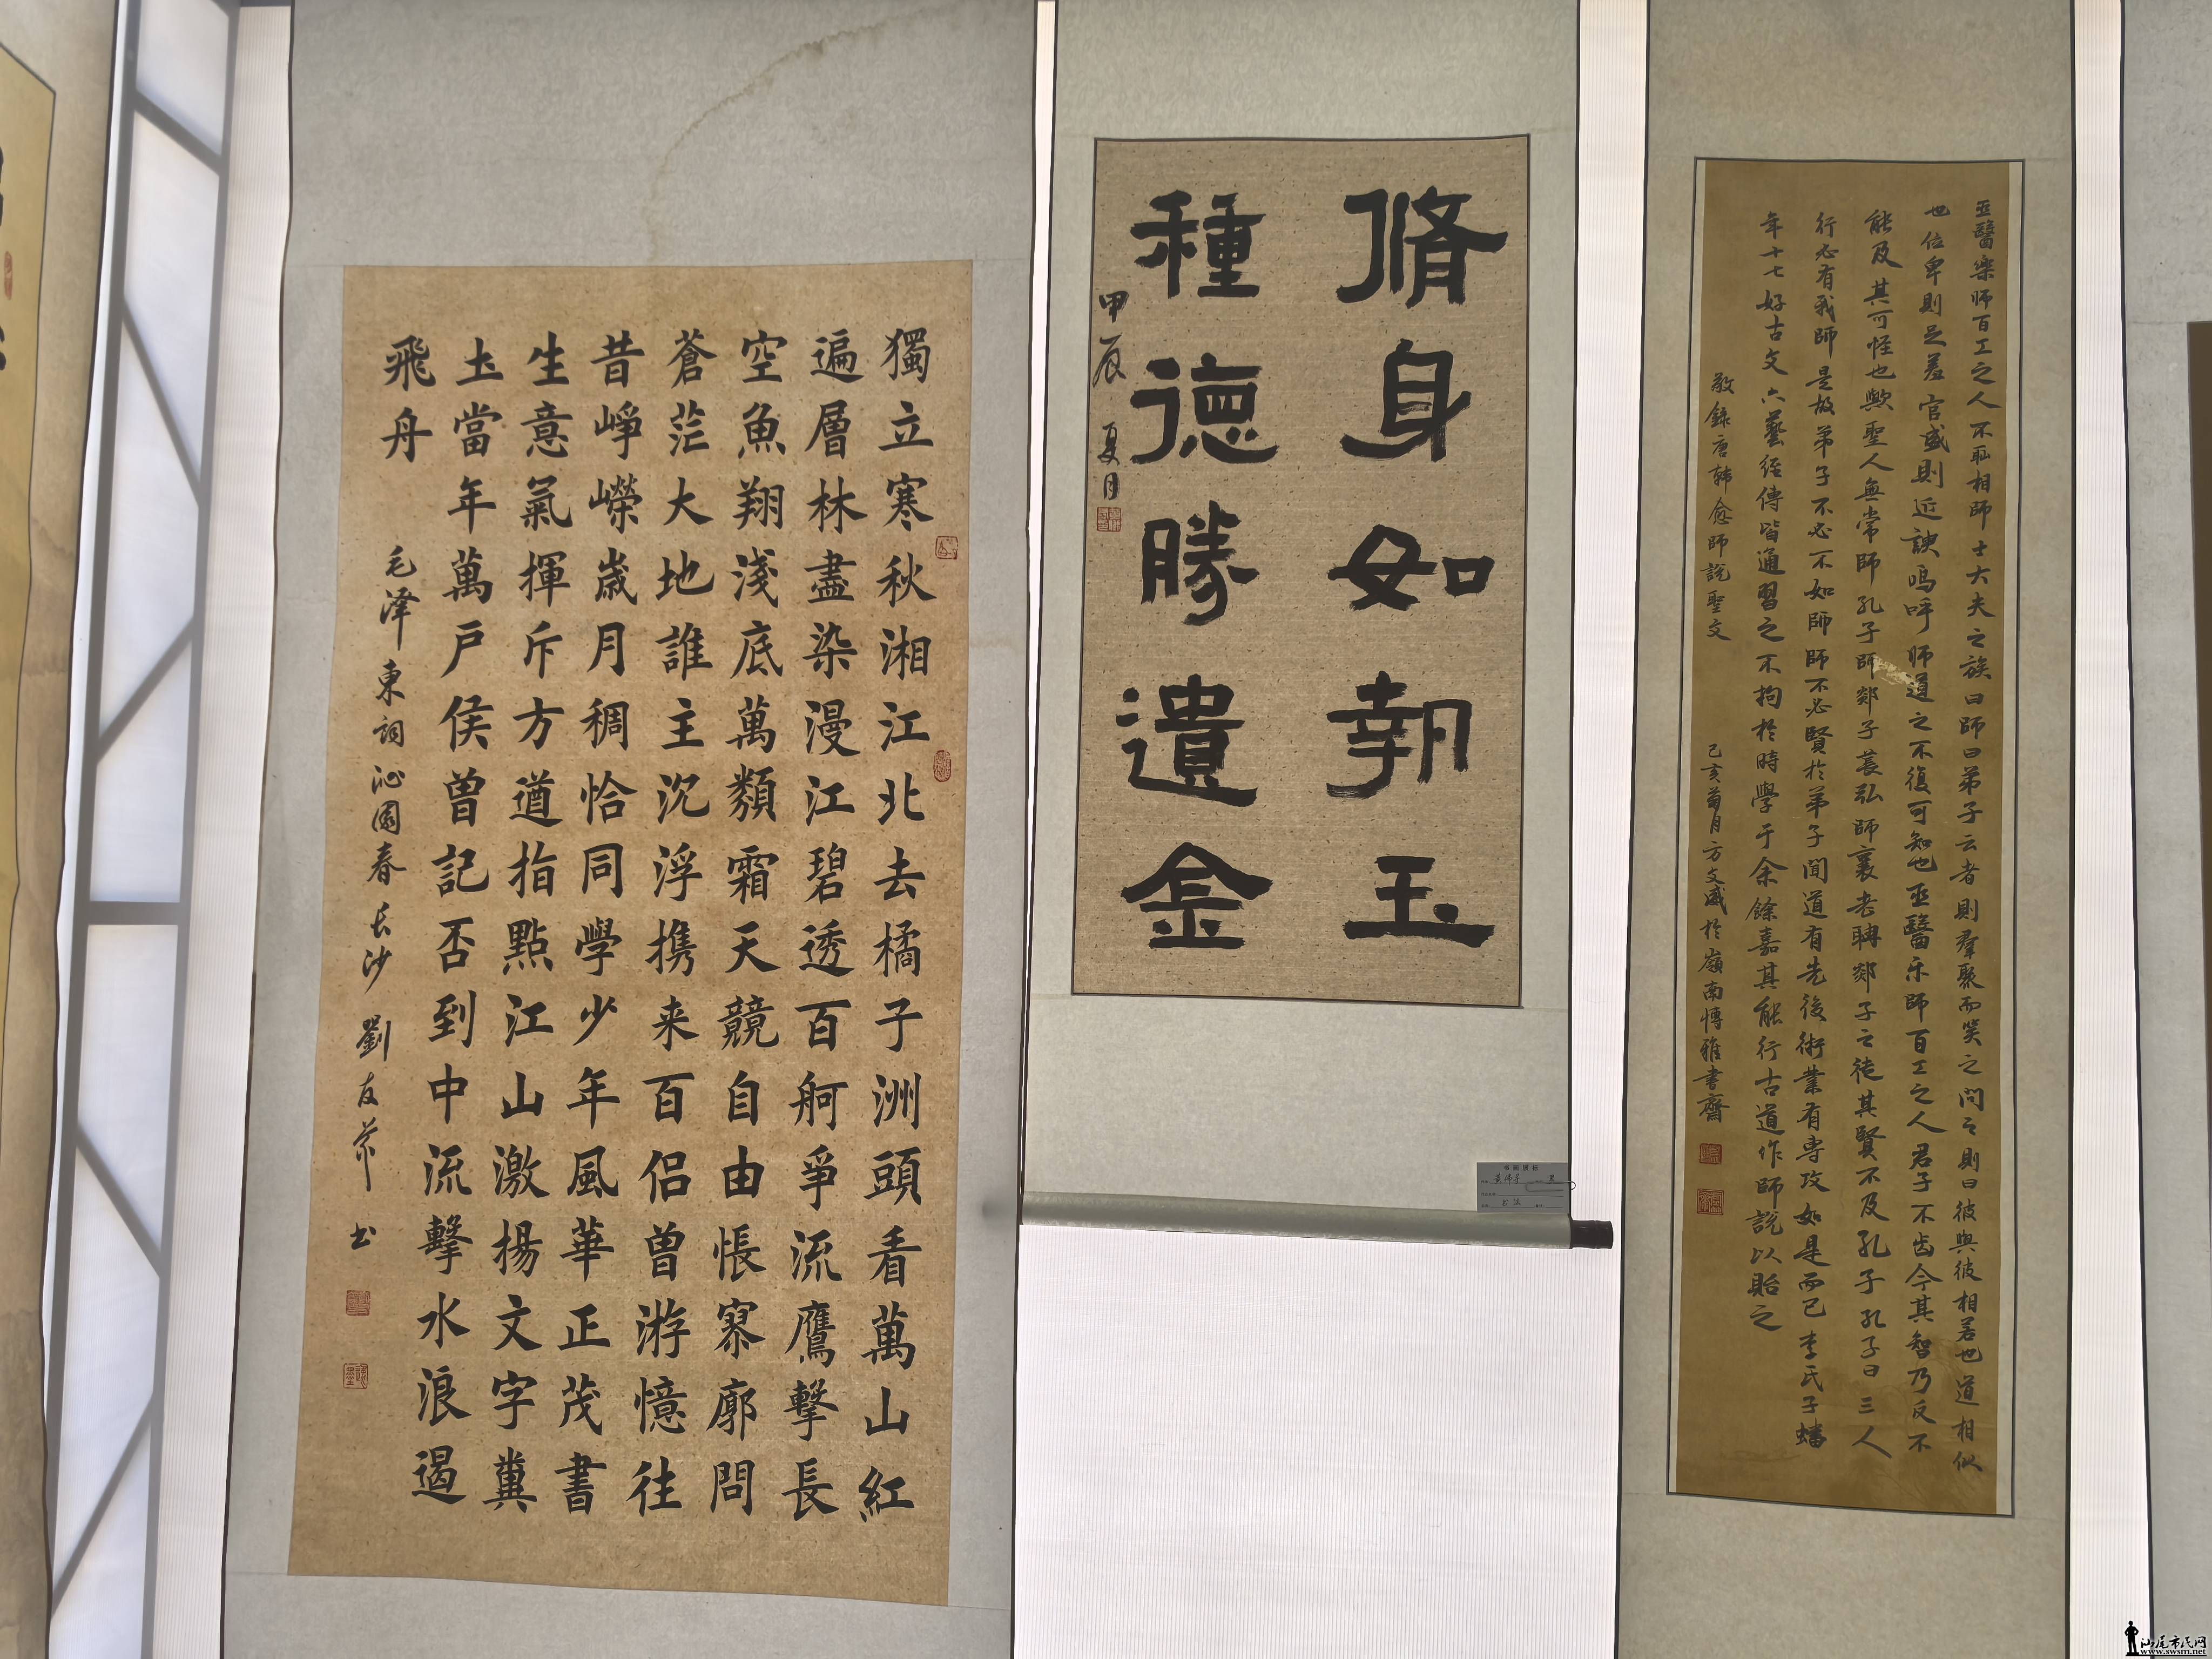 獨立寒秋湘江北去橘子洲頭看萬山紅
遍層林盡染漫江碧透百舸爭流鷹擊長
空魚翔淺底萬類霜天競自由悵寥廓問
蒼茫大地誰主沉浮携来百侣曾游憶往
昔崢嶸歲月稠恰同學少年風華正茂書
生意氣揮斥方遒指點江山激揚文字糞
土當年萬戶侯曾記否到中流擊水浪遏
飛舟
毛泽東詞沁園春长沙 劉友 书
脩身如執玉
種德勝遺金
甲辰夏月
巫醫樂师百工之人不耻相師士大夫之族曰師曰弟子云者則羣聚而笑之問之則曰彼與彼相若也道相似
也位卑則足羞官盛則近諛嗚呼师道之不復可知也巫醫乐師百工之人君子不齿今其智乃反不
能及其可怪也歟聖人無常師孔子師郯子萇弘師襄老聃郯子之徒其賢不及孔子孔子曰三人
行必有我師是故弟子不必不如師師不必賢於弟子聞道有先後術業有專攻如是而已李氏子蟠
年十七好古文六藝經傳皆通習之不拘於時學于余餘嘉其能行古道作師說以貽之
敬錄唐韓愈師說聖文 己亥菊月方文盛於嶺南博雅書齋
汕尾市民网
www.swsm.net